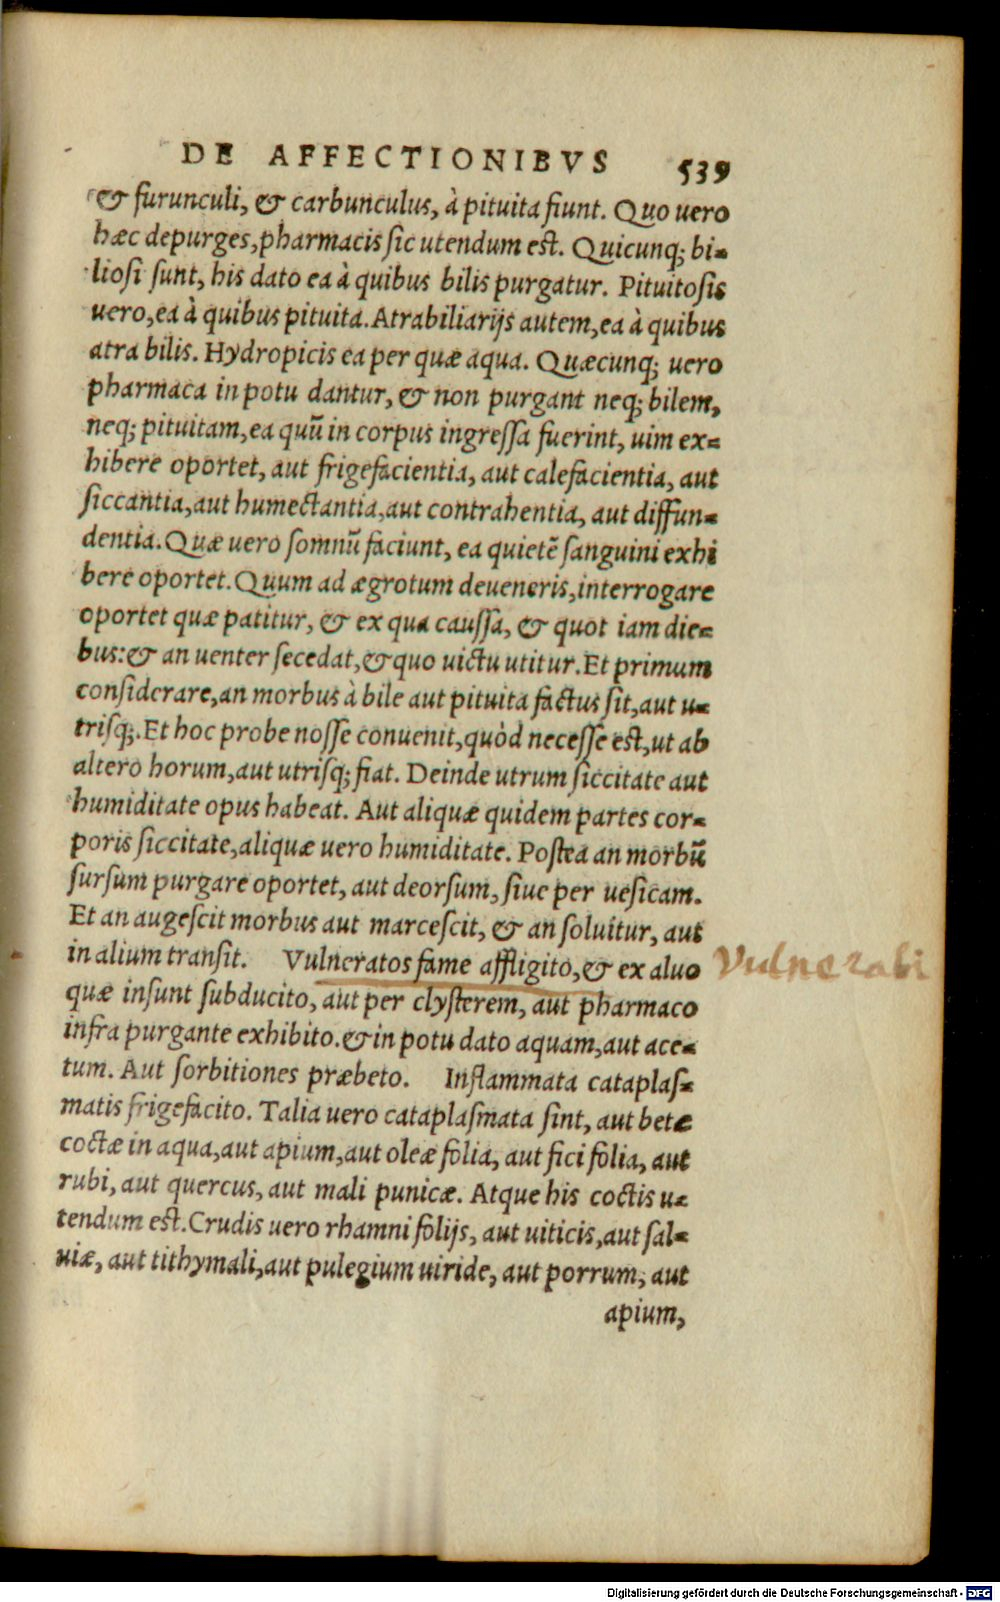 DE AFFECTIONIBVS 539
& furunculi, & carbunculus, à pituita fiunt. Quo uero
hæc depurges, pharmacis sic utendum est. Quicunq; bi-
liosi sunt, his dato ea à quibus bilis purgatur. Pituitosis
uero, ea à quibus pituita. Atrabiliarijs autem, ea à quibus
atra bilis. Hydropicis ea per quæ aqua. Quæcunq; uero
pharmaca in potu dantur, & non purgant neq; bilem,
neq; pituitam, ea quũ in corpus ingressa fuerint, uim ex-
hibere oportet, aut frigefacientia, aut calefacientia, aut
siccantia, aut humectantia, aut contrahentia, aut diffun-
dentia. Quæ uero somnũ faciunt, ea quietẽ sanguini exhi
bere oportet. Quum ad ægrotum deueneris, interrogare
oportet quæ patitur, & ex qua caussa, & quot iam die-
bus: & an uenter secedat, & quo uictu utitur. Et primum
considerare, an morbus à bile aut pituita factus sit, aut u-
trisq;. Et hoc probe nosse conuenit, quòd necesse est, ut ab
altero horum, aut utrisq; fiat. Deinde utrum siccitate aut
humiditate opus habeat. Aut aliquæ quidem partes cor-
poris siccitate, aliquæ uero humiditate. Postea an morbũ
sursum purgare oportet, aut deorsum, siue per uesicam.
Et an augescit morbus aut marcescit, & an soluitur, aut
in alium transit. Vulneratos fame affligito, & ex aluo Vulnerati
quæ insunt subducito, aut per clysterem, aut pharmaco
infra purgante exhibito. & in potu dato aquam, aut ace-
tum. Aut sorbitiones præbeto. Inflammata cataplas-
matis frigefacito. Talia uero cataplasmata sint, aut betæ
coctæ in aqua, aut apium, aut oleæ folia, aut fici folia, aut
rubi, aut quercus, aut mali punicæ. Atque his coctis u-
tendum est. Crudis uero rhamni folijs, aut uiticis, aut sal-
uiæ, aut tithymali, aut pulegium uiride, aut porrum, aut
apium,
Digitalisierung gefördert durch die Deutsche Forschungsgemeinschaft - DFG